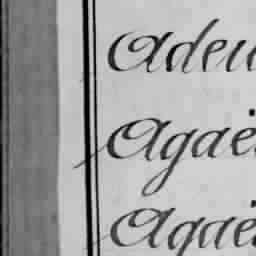 Adeu
Agaë
Agaë